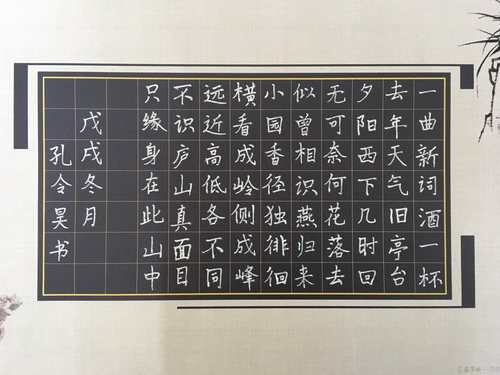 一曲新词酒一杯
去年天气旧亭台
夕阳西下几时回
无可奈何花落去
似曾相识燕归来
小园香径独徘徊
横看成岭侧成峰
远近高低各不同
不识庐山真面目
只缘身在此山中
戊戌冬月
孔令昊书